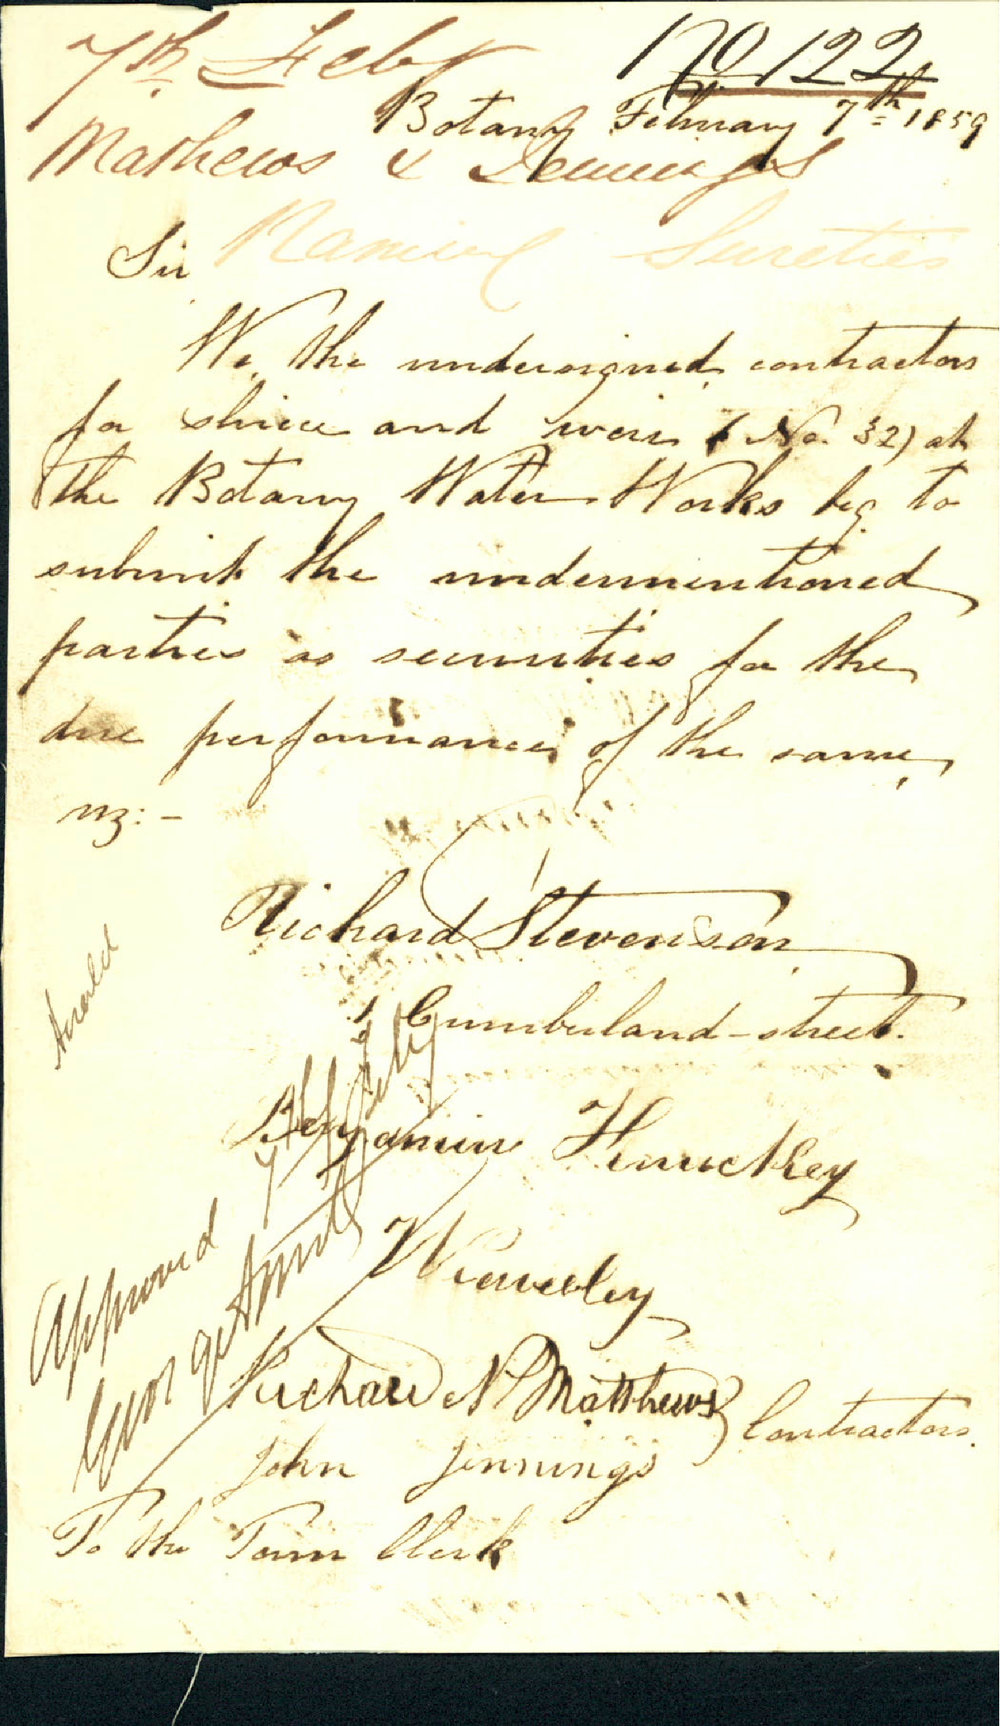 7th Feby 170122
Botany February 7th 1859
Mathews & Jennings
Sir
Naming Sureties
We the undersigned contractors
for sluice and weir (No. 32) at
the Botany Water Works beg to
submit the undermentioned
parties as securities for the
due performance of the same,
viz:-
Richard Stevenson
Cumberland-street.
Benjamin
Waverley
Richard N Matthews } Contractors.
John Jennings
To the Town Clerk
Approved 7th Feby